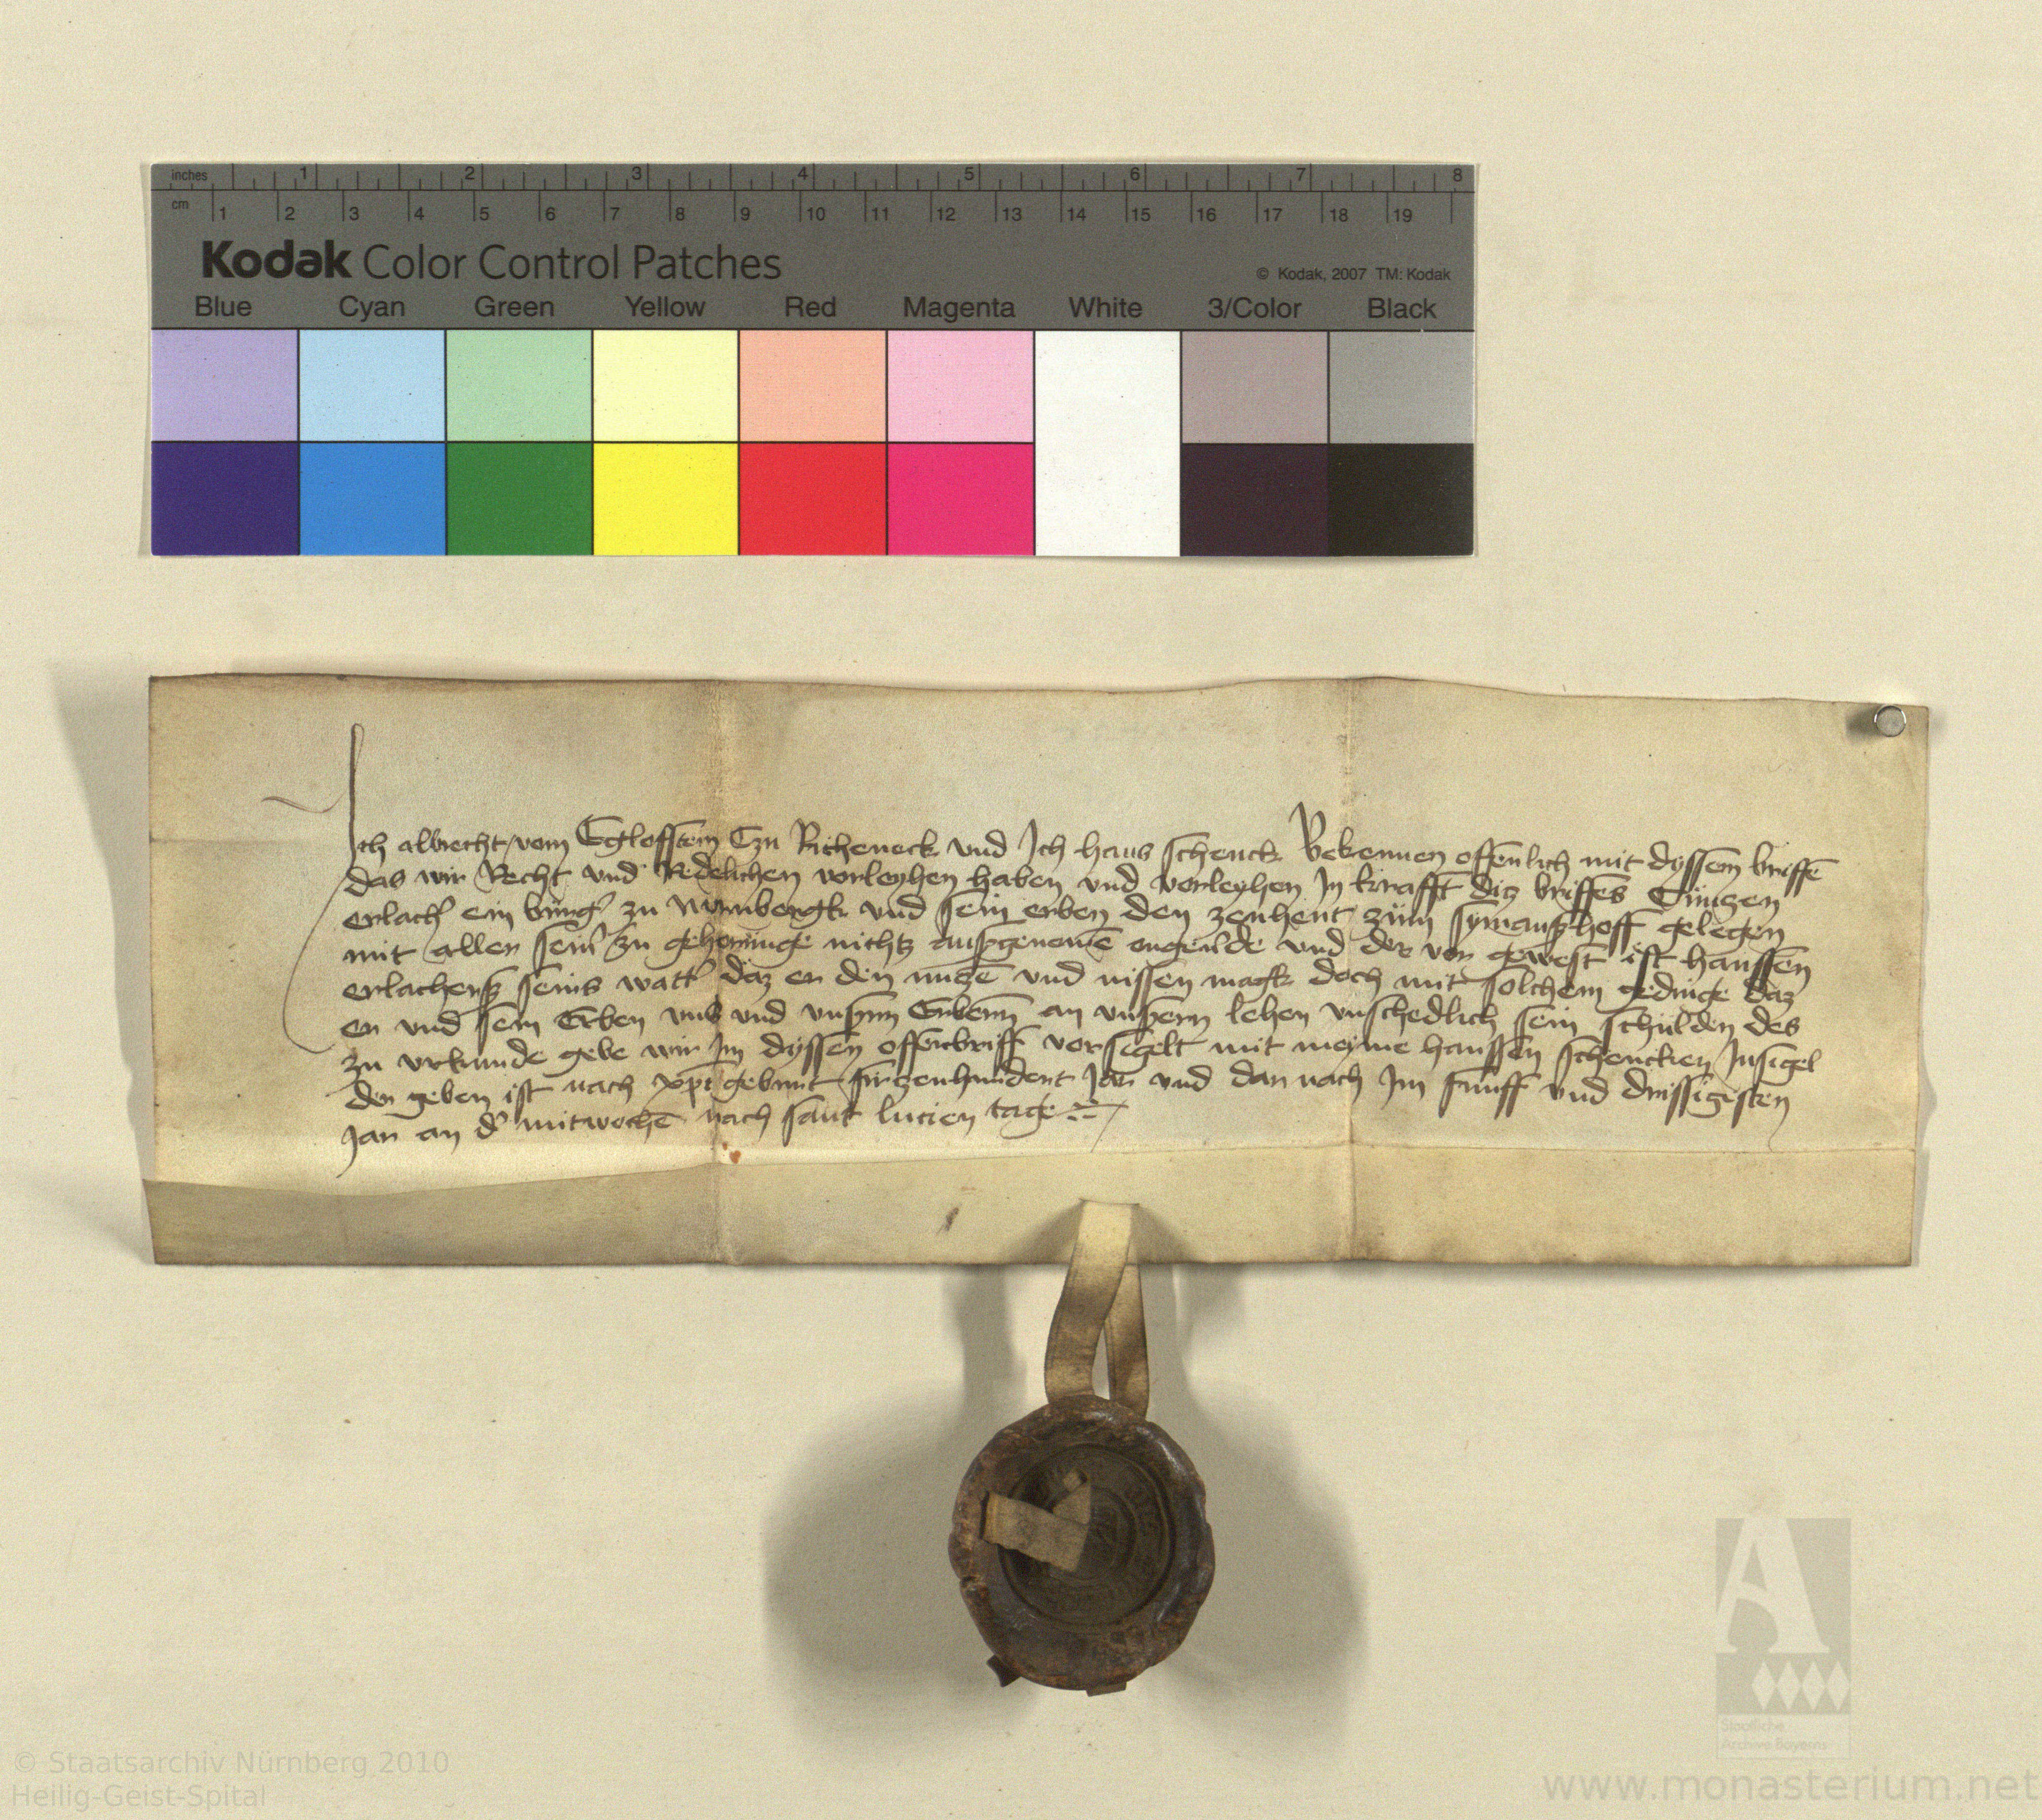 inches 1 2 3 4 5 6 7 8
cm 1 2 3 4 5 6 7 8 9 10 11 12 13 14 15 16 17 18 19
Kodak Color Control Patches
© Kodak, 2007 TM: Kodak
Blue Cyan Green Yellow Red Magenta White 3/Color Black
Ich albrecht vom Egloffstein Czu Richeneck und Ich hans schenck Bekennen offenlich mit dyssem briffe
das wir Recht und Redelichen vorleyhen haben und vorleyhen In krafft diz briffes Cunczen
erlach' ein burg' zu Nurmbergk und sein erben den zenhent zum symanshoff gelegen
mit allen sein' zu gehorunge nichtz ausgenome ongeulde und der vor gewest ist hanssen
erlachers seins vatt' daz er den nuze und nissen magk doch mit solchem gedinge daz
er und sein Erben uns und unsern Erbenn an unsern lehen unschedlich sein schulden des
zu urkunde gebe wir Im dyssen offenbriff vorsigelt mit meyme hanssen schencken Insigel
der geben ist nach xpi geburt firzenhundert Jar und dar nach Im funff und drissigisten
Jar an d' mitwoche nach sant lucien tage
© Staatsarchiv Nürnberg 2010
Heilig-Geist-Spital
Staatliche
Archive Bayerns
www.monasterium.net